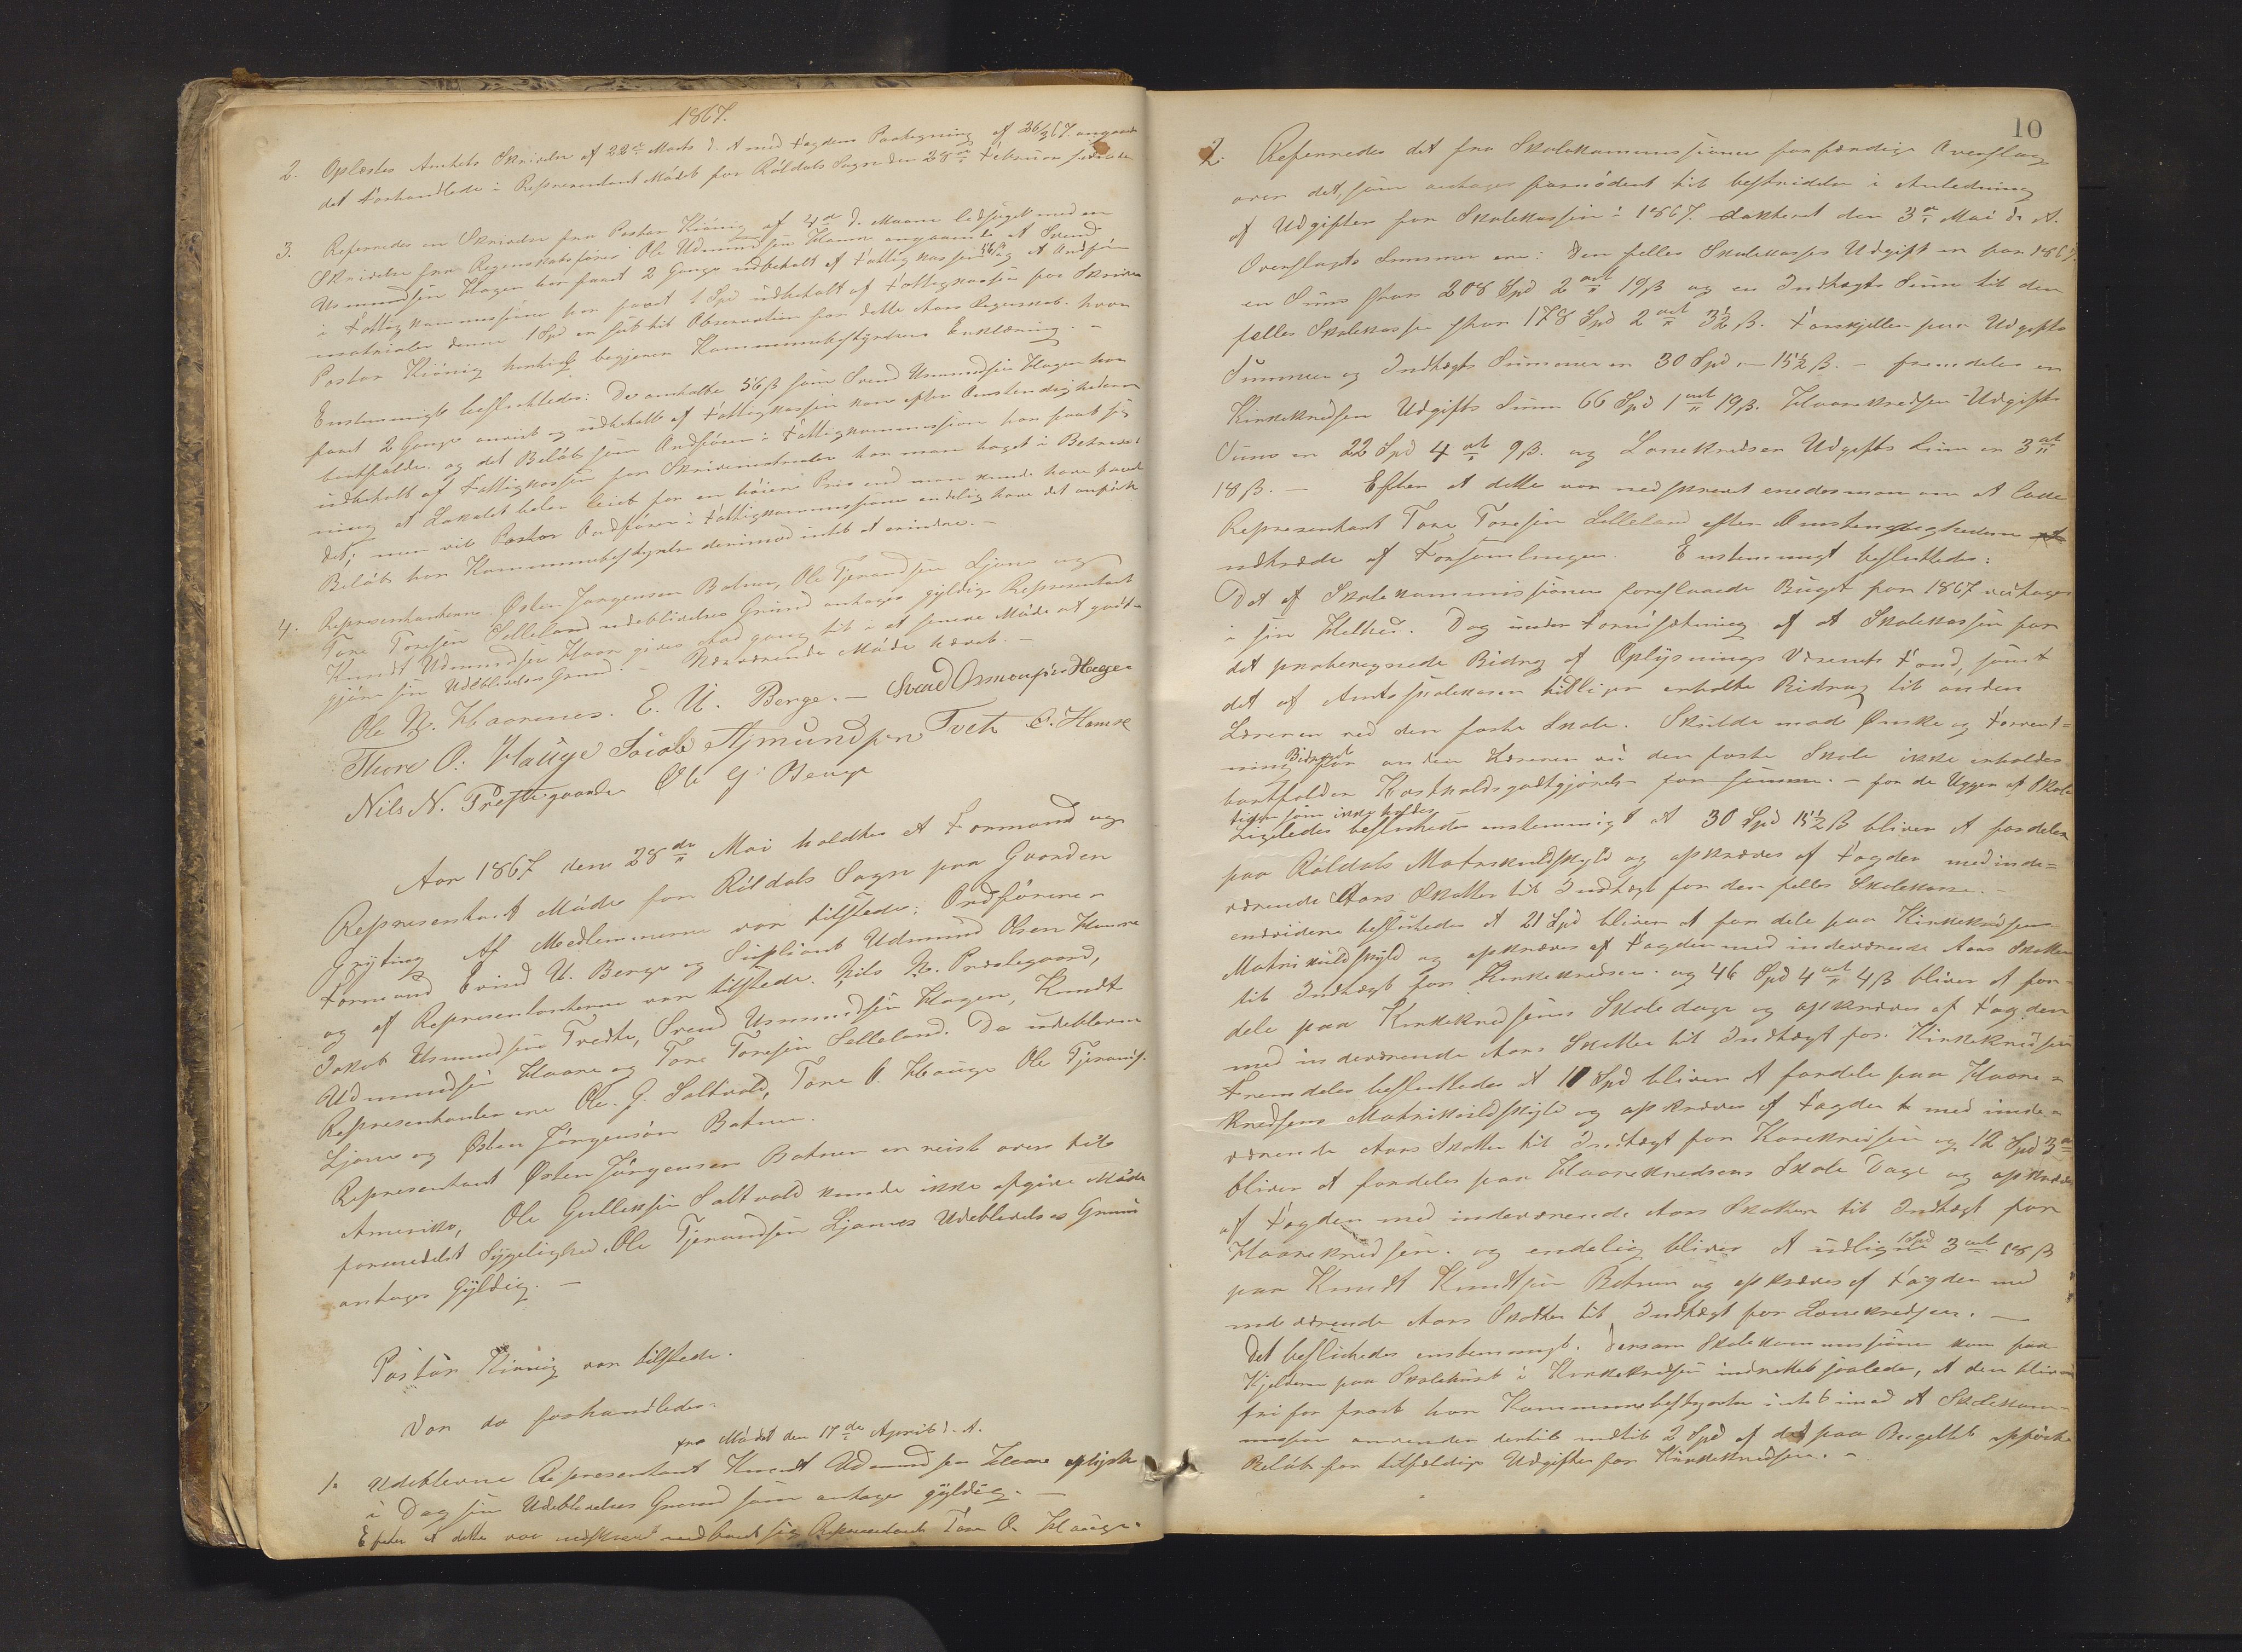 1867.
2. Oplæstes Amtets Skrivelse af 22de Marts d. A med Fogdens Paategning af 26/3 67. angaaende
det Forhandlede i Representant Mødet for Røldals Sogn den 28de Februar sidste
3. Refereredes en Skrivelse fra Pastor Kiönig af 4de d. Maane ledsaget med en
Skrivelse fra Regenskabsfører Ole Udmundsen Haare angaaende At Svend
Usmundsen Hagen har faaet 2 Gange udbetalt af Fattigkassen 56 ß og At Ordfører
i Fattigkommissionen har faaet 1 Spd udbetalt af Fattigkassen for Skrive
matrialer denne 1 Spd er sat til Observation for dette Aars Regenskab. hvor
Pastor Kiönig herting begjerer Kommunebestyrelsens Erklæring. –
Enstemmigt besluttedes: De omhaltte 56 ß som Svend Usmundsen Hagen har
faaet 2 Gange anvist og udbetalt af Fattigkassen kan efter Omstendighederne
bortfalde. og det Beløb som Ordføreren i Fattigkommissionen har faaet sig
udbetalt af Fattigkassen for Skrivematrialer har man taget i Betragt
ning at Lokalet belev leiet for en høiere Priis end man kunde have faaet
det; men vil Pastor Ordfører i Fattigkommissionen endelig have det anførte
Beløb har Kommunebestyrelse derimod intet at erindre. –
4. Representanterne Østen Jørgensen Botnen, Ole Tjerandsen Ljone og
Tore Toresen Lelleland udeblivelses Grund antages gyldige Representant
Knudt Udmundsen Haare gives Adgang til i et senere Møde at godt-
gjøre sin Udeblivelses Grund. – Nærværende Møde hævet. –
Ole N. Haarenes. E. U. Berge. – Svend Osmonsen Hagen
Thore O: Hauge Jacob Asmundsen Tveten O. Hamre
Nils N. Prestegaarden Ole G. Berge
Aar 1867 den 28de Mai holdtes et Formand og
Representant Møde for Røldals Sogn paa Gaarden
Gryting Af Medlemmerne var tilstede: Ordføreren
Formand Erived U. Berge og Supliant Udmund Olsen Hamre
og af Representanterne var tilstede. Nils N. Præstegaard,
Jakob Usmundsen Tvedte, Svend Usmundsen Hagen, Knudt
Udmundsen Haare og Tore Toresen Lelleland. De udeblevne
Representanter ere Ole. G. Saltvold, Tore O. Hauge Ole Tjerands.
Ljone og Østen Jørgensøn Botnen.
Representant Østen Jørgensen Botnen er reist over til
Amerika, Ole Gulleksen Saltvold kunde ikke afgive Møde
formedelst Sygelighed. Ole Tjerandsen Ljones Udeblivelses Grund
antages Gyldig. –
Pastor Kiönig var tilstede.
Var da forhandledes:
fra Mødet den 17de April d. A.
1. Udeblevne Representant Knudt Udmundsen Haare oplyste
i Dag sin Udeblivelses Grund som antages gyldig. –
Efter at dette var nedskrevet indfandt sig Representant Tore O. Hauge.
10
2. Refereredes det fra Skolekommissionen forfærdige Overslag
over det, som antages fornødent til bestridelse i Anledning
af Udgifter for Skolekassen i 1867. dateret den 3de Mai d. A.
Overslagts Summer ere: den felles Skolekasses Udgift er for 1867.
en Sum stor 208 Spd 2 ort 19 ß og en Indtægts Sum til den
felles Skolekasse stor 178 Spd 2 ort 3½ ß. Forskjellen paa Udgifts
Summen og Indtægts Summen er 30 Spd. – 15½ ß. – fremdeles er
Kirkekredsen Udgifts Sum 66 Spd 1 ort 19 ß. Haarekredsen Udgifts
Sum er 22 Spd 4 ort 9 ß. og Lonekredsen Udgifts Sum er 3 ort
18 ß. – Efter at dette var nedskrevet enedes man om at lade
Representant Tore Toresen Lelleland efter Omstendighederne
udtræde af Forsamlingen. Enstemmigt besluttedes:
Det af Skolekommissionen foreslaaede Buget for 1867 vedtages
i sin Helhed. Dog under Forudsætning af at Skolekassen faar
det paaberegnede Bidrag af Oplysnings Væsenets Fond, samt
det af Amtsskolekassen tidligere erholdte Bidrag til anden
Læreren ved den faste Skole. Skulde mod Ønske og Forvent=
ning Bidraget for anden Læreren ved den faste Skole ikke erholdes
bortfalder Kostholdsgodtgjørels for samme. – for de Uggen af Skole
tiden som ikke holdes
Ligeledes besluttedes enstemmigt at 30 Spd 15½ ß bliver At fordeles
paa Røldals Matrikulskyld og opkræves af Fogden med inde=
værende Aars Skatter til Indtægt for den felles Skolekasse. –
endvidere besluttedes At 21 Spd bliver At for dele paa Kirkekredsens
Matrikulskyld og opkræves af Fogden med indeværende Aars Skatter
til Indtægt for Kirkekredsen. og 46 Spd 4 ort 4 ß bliver At for-
dele paa Kirkekredsens Skole dage og opkræves af Fogden
med indeværende Aars Skatter til Indtægt for Kirkekredsen
Fremdeles besluttedes At 10 Spd bliver At fordele paa Haare=
kredsens Matrikulskyld og opkræves af Fogden med inde=
værende Aars Skatter til Indtægt for Harekredsen og 12 Spd 3 ort
bliver At fordeles paa Haarekredsens Skole Dage og opkræves
af Fogden med indeværende Aars Skatter til Indtægt for
Haarekredsen. og endelig bliver At udligne 1 Spd 3 ort 18 ß
paa Knudt Knudtsen Botnen og opkræves af Fogden med
indeværende Aars Skatter til Indtægt for Lonekredsen. –
Det besluttedes enstemmigt. Dersom Skolekommissionen kan faa
Kjelderen paa Skolehuset i Kirkekredsen indrettet saaledes, at den bliver
fri for frost har Kommunebestyrelse intet imod At Skolekom-
mission anvender dertil indtil 2 Spd af det paa Bugettet opførte
Beløb for tilfældige Udgifter for Kirkekredsen. –